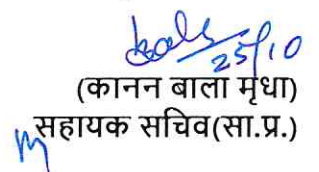 25/10
(कानन बाला मृधा)
सहायक सचिव(सा.प्र.)